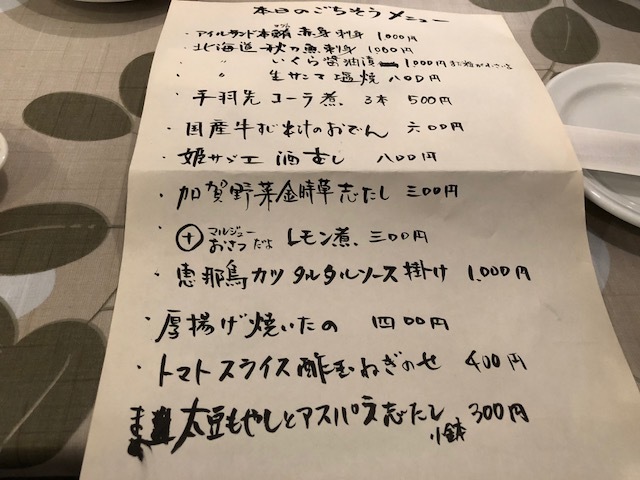 本日のごちそうメニュー
・アイルランド本鮪 赤身刺身 1,000円
・北海道 秋刀魚刺身 1,000円
・〃 いくら醤油漬 1,000円
・〃 生サンマ塩焼 八〇〇円
・手羽先コーラ煮 3本 500円
・国産牛すじ だけのおでん 六〇〇円
・姫サザエ 酒むし 八〇〇円
・加賀野菜金時草志たし 三〇〇円
・㊉ マルジュー おさつだよ レモン煮 三〇〇円
・恵那鳥カツ タルタルソース掛け 1,000円
・厚揚げ焼いたの 四〇〇円
・トマトスライス酢玉ねぎのせ 400円
太豆もやしとアスパラ志たし 小鉢 300円